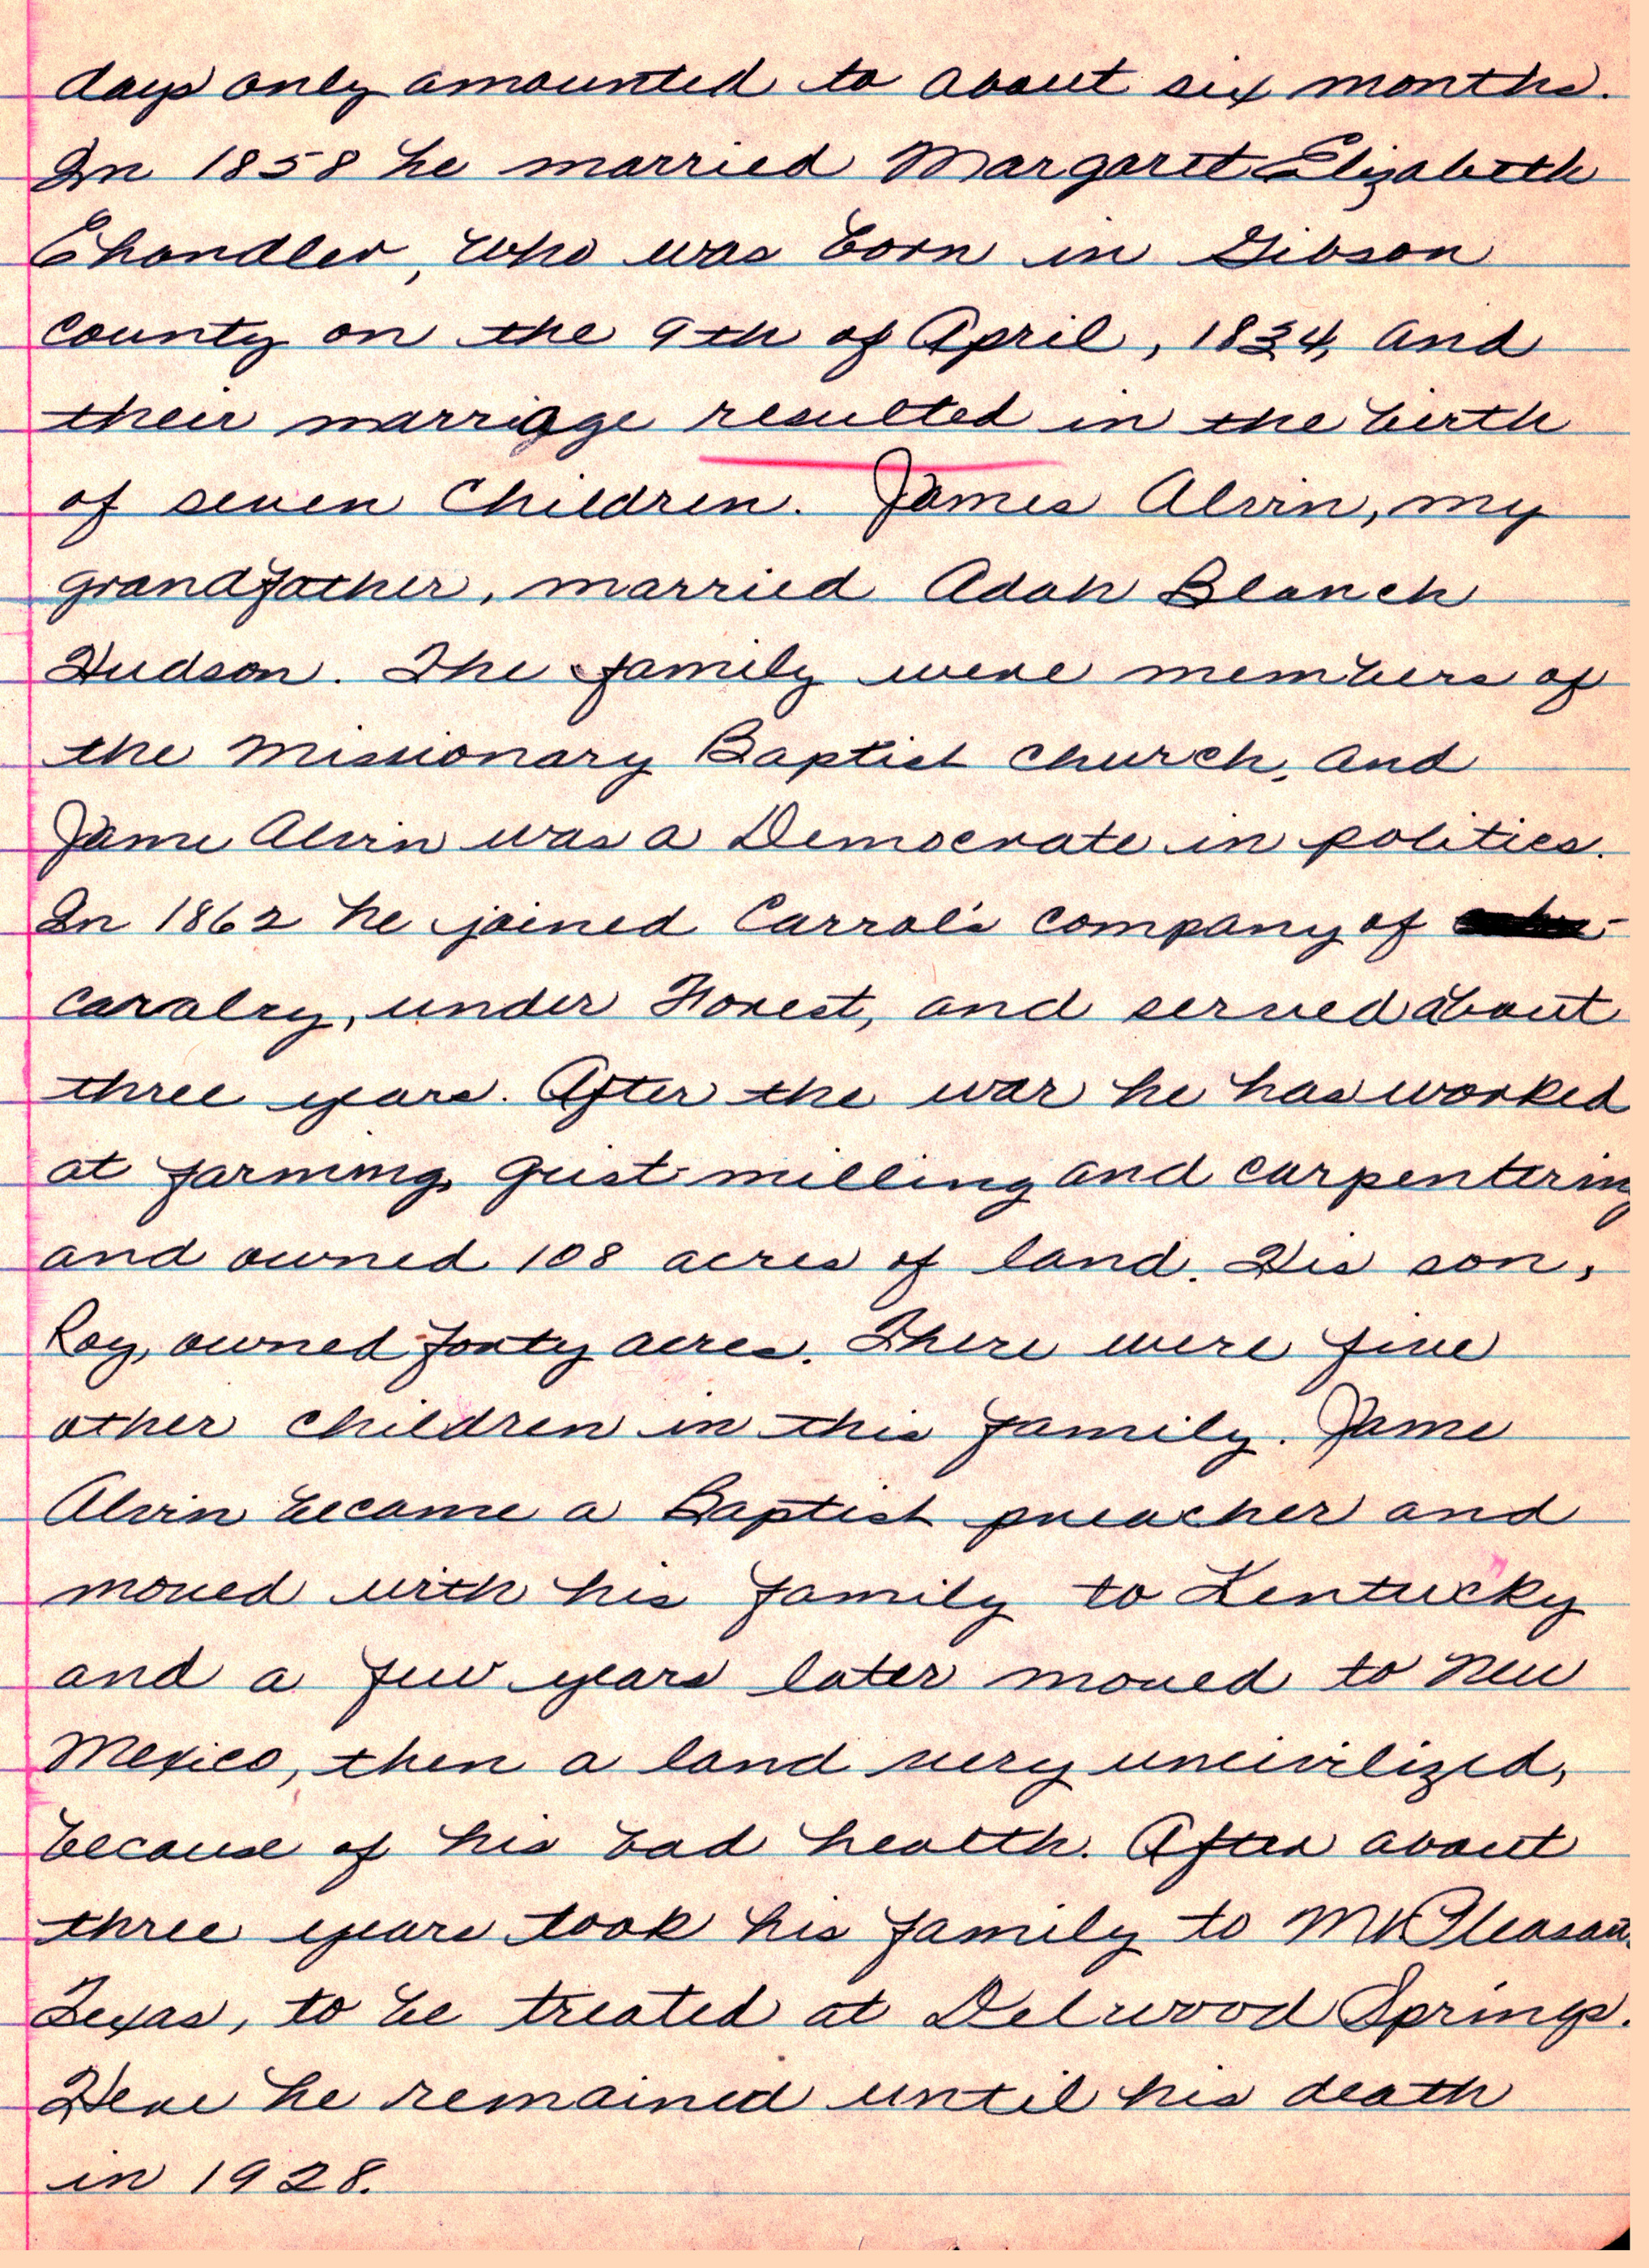 days only amounted to about six months.
In 1858 he married Margaret Elizabeth
Chandler, who was born in Gibson
county on the 9th of April, 1834, and
their marriage resulted in the birth
of seven children. James Alvin, my
grandfather, married Adah Blanch
Hudson. The family were members of
the Missionary Baptist church, and
Jame Alvin was a Democrate in politics.
In 1862 he joined Carrol's company of
cavalry, under Forest, and served about
three years. After the war he has worked
at farming, grist milling and carpentering
and owned 108 acres of land. His son,
Roy, owned forty acres. There were five
other children in this family. Jame
Alvin became a Baptist preacher and
moved with his family to Kentucky
and a few years later moved to New
Mexico, then a land very uncivilized,
because of his bad health. After about
three years took his family to Mt Pleasant
Texas, to be treated at Delwood Springs.
Here he remained until his death
in 1928.